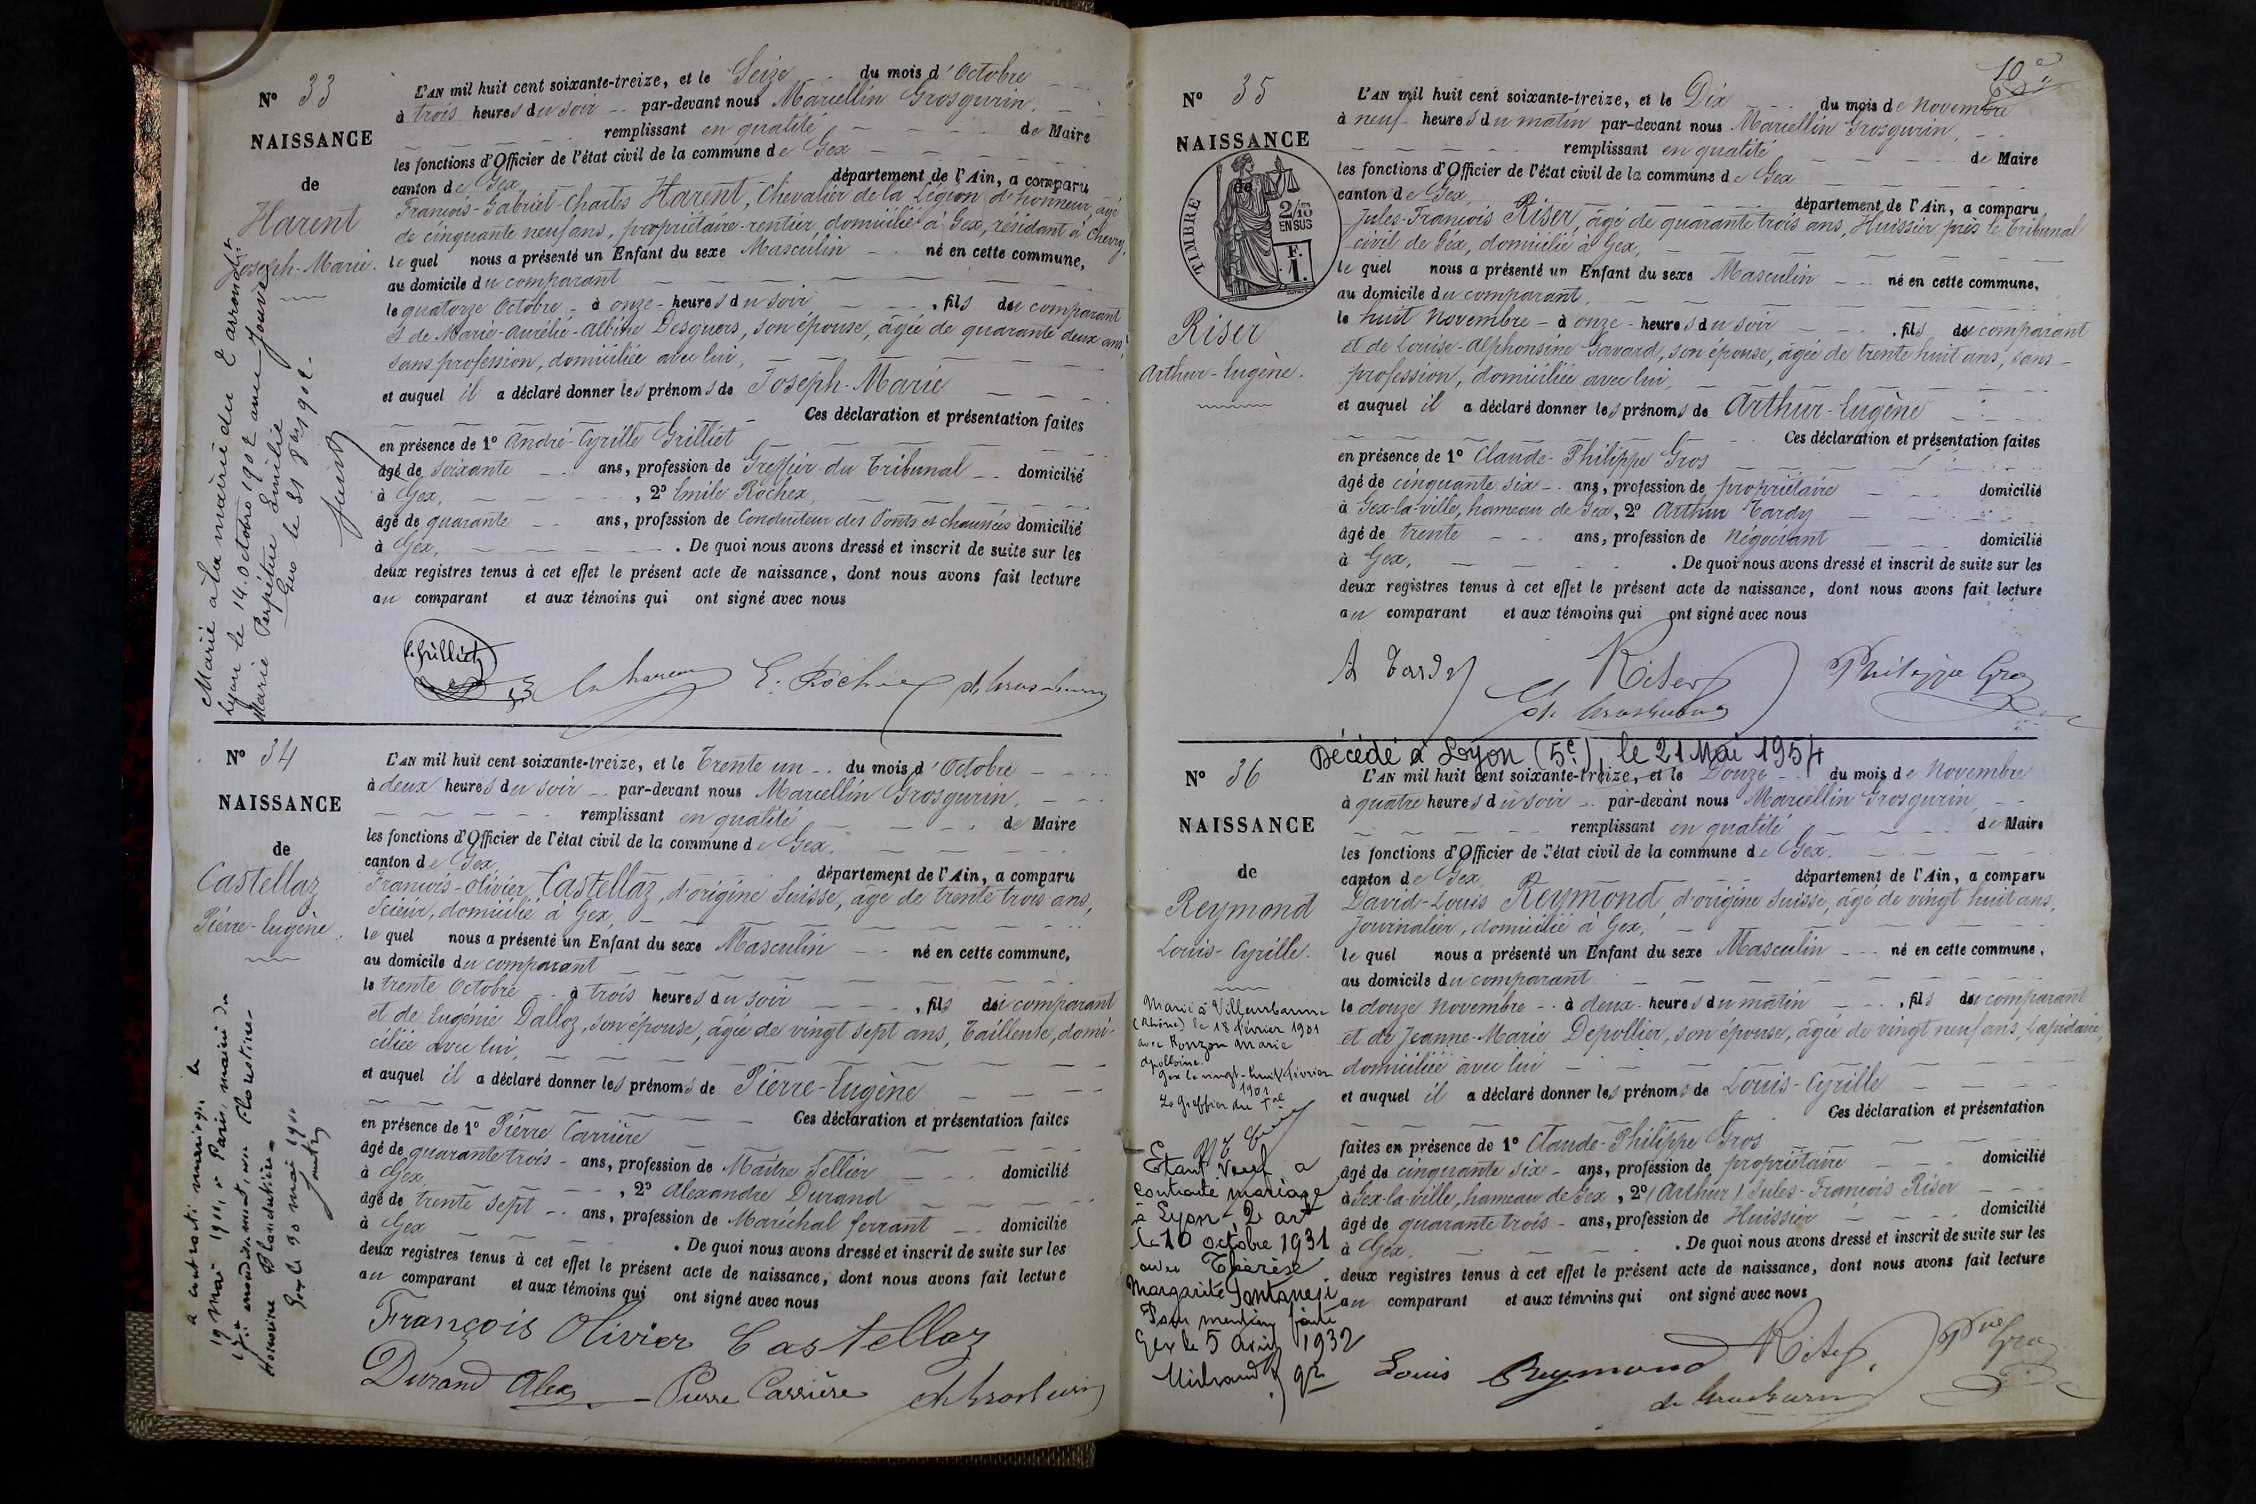 N° 33
NAISSANCE
de
Harent
Joseph-Marie.
L'AN mil huit cent soixante-treize, et le Seize du mois d'Octobre
à trois heures du soir par-devant nous Marcellin Grosgurin,
remplissant en qualité de Maire
les fonctions d'Officier de l'état civil de la commune de Gex
canton de Gex département de l'Ain, a comparu
François-Gabriel-Charles Harent, Chevalier de la Légion d'honneur, âgé
de cinquante neuf ans, propriétaire-rentier domicilié à Gex, résidant à Chevry,
lequel nous a présenté un Enfant du sexe Masculin né en cette commune,
au domicile du comparant
le quatorze Octobre à onze heures du soir, fils du comparant
et de Marie-Aurélie-Albine Desguers, son épouse, âgée de quarante deux ans,
sans profession, domiciliée avec lui,
et auquel il a déclaré donner les prénoms de Joseph-Marie
Ces déclaration et présentation faites
en présence de 1° André-Cyrille Grilliet
âgé de soixante ans, profession de Greffier du Tribunal domicilié
à Gex, 2° Emile Rochex,
âgé de quarante ans, profession de Conducteur des Ponts et chaussées domicilié
à Gex, . De quoi nous avons dressé et inscrit de suite sur les
deux registres tenus à cet effet le présent acte de naissance, dont nous avons fait lecture
au comparant et aux témoins qui ont signé avec nous
Marié à la mairie du 2e arrondit
Lyon le 14 octobre 1902 avec Jouve
Marie Perpétue Emilie
Gex le 31 8bre 1902.
C. Grilliet
E. Rochex
N° 34
NAISSANCE
de
Castellaz
Pierre-Eugène.
L'AN mil huit cent soixante-treize, et le Trente un du mois d'Octobre
à deux heures du soir par-devant nous Marcellin Grosgurin,
remplissant en qualité de Maire
les fonctions d'Officier de l'état civil de la commune de Gex.
canton de Gex département de l'Ain, a comparu
François-Olivier Castellaz, d'origine Suisse, âgé de trente trois ans,
Scieur, domicilié à Gex,
lequel nous a présenté un Enfant du sexe Masculin né en cette commune,
au domicile du comparant
le trente Octobre à trois heures du soir, fils du comparant
et de Eugénie Dalloz, son épouse, âgée de vingt sept ans, Tailleuse, domi-
ciliée avec lui,
et auquel il a déclaré donner les prénoms de Pierre-Eugène
Ces déclaration et présentation faites
en présence de 1° Pierre Carrière
âgé de quarante trois ans, profession de Maître Sellier domicilié
à Gex, 2° Alexandre Durand
âgé de trente sept ans, profession de Maréchal ferrant domicilié
à Gex . De quoi nous avons dressé et inscrit de suite sur les
deux registres tenus à cet effet le présent acte de naissance, dont nous avons fait lecture
au comparant et aux témoins qui ont signé avec nous
a contracté mariage le
19 mai 1911, à Paris, mairie du
arrondissement, avec Florentine
Honorine Blandutière
Gex le 30 mai 1911
François Olivier Castellaz
Durand Alex Pierre Carrière
10e
N° 35
NAISSANCE
de
TIMBRE
2/10
EN SUS
F.
1.
Riser
Arthur-Eugène.
L'AN mil huit cent soixante-treize, et le Dix du mois de Novembre
à neuf heures du matin par-devant nous Marcellin Grosgurin,
remplissant en qualité de Maire
les fonctions d'Officier de l'état civil de la commune de Gex
canton de Gex, département de l'Ain, a comparu
Jules-François Riser, âgé de quarante trois ans, Huissier près le Tribunal
civil de Gex, domicilié à Gex,
lequel nous a présenté un Enfant du sexe Masculin né en cette commune,
au domicile du comparant,
le huit Novembre à onze heures du soir, fils du comparant
et de Louise-Alphonsine Gavard, son épouse, âgée de trente huit ans, sans
profession, domiciliée avec lui,
et auquel il a déclaré donner les prénoms de Arthur-Eugène
Ces déclaration et présentation faites
en présence de 1° Claude-Philippe Gros
âgé de cinquante six ans, profession de propriétaire domicilié
à Gex-la-ville, hameau de Gex, 2° Arthur Tardy
âgé de trente ans, profession de Négociant domicilié
à Gex, . De quoi nous avons dressé et inscrit de suite sur les
deux registres tenus à cet effet le présent acte de naissance, dont nous avons fait lecture
au comparant et aux témoins qui ont signé avec nous
A Tardy Riser Philippe Gros
Décédé à Lyon (5e), le 21 Mai 1954
N° 36
NAISSANCE
de
Reymond
Louis-Cyrille.
L'AN mil huit cent soixante-treize, et le Douze du mois de Novembre
à quatre heures du soir par-devant nous Marcellin Grosgurin,
remplissant en qualité de Maire
les fonctions d'Officier de l'état civil de la commune de Gex.
canton de Gex, département de l'Ain, a comparu
David-Louis Reymond, d'origine Suisse, âgé de vingt huit ans,
Journalier, domicilié à Gex,
lequel nous a présenté un Enfant du sexe Masculin né en cette commune,
au domicile du comparant
le douze Novembre à deux heures du matin, fils du comparant
et de Jeanne-Marie Depollier, son épouse, âgée de vingt neuf ans, Lapidaire,
domiciliée avec lui
et auquel il a déclaré donner les prénoms de Louis-Cyrille
Ces déclaration et présentation
faites en présence de 1° Claude-Philippe Gros
âgé de cinquante six ans, profession de propriétaire domicilié
à Gex-la-ville, hameau de Gex, 2° (Arthur) Jules-François Riser
âgé de quarante trois ans, profession de Huissier domicilié
à Gex, . De quoi nous avons dressé et inscrit de suite sur les
deux registres tenus à cet effet le présent acte de naissance, dont nous avons fait lecture
au comparant et aux témoins qui ont signé avec nous
Marié à Villeurbanne
(Rhône) le 18 février 1901
avec Rouzon Marie
Apolloine.
Gex le vingt-huit février
1901
Le Greffier du Tal
Etant Veuf a
contracté mariage
à Lyon 2e art
le 10 octobre 1931
avec Thérèse
Margarite Fontaneji
Pour mention faite
Gex le 5 avril 1932
Louis Reymond Riser